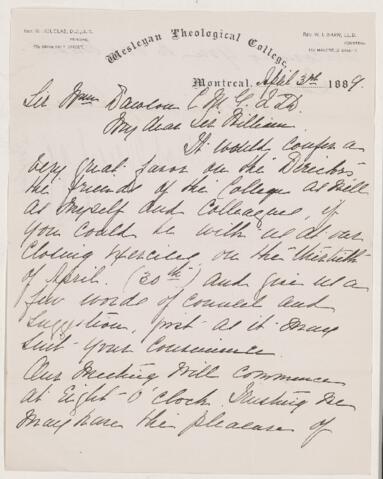 REV. G. DOUGLAS, D.D., LL.D.
PRINCIPAL
REV. W. I. SHAW, LL.D.
Wesleyan Theological College,
Montreal, April 3rd 1889
Sir Wm Dawson C M G, LLD.
My dear Sir William.
It would confer a
very great favor on the Directors
the friends of the College as well
as myself and Colleagues, if
you could be with us at our
Closing Exercises on the thirtieth
of April. (30th) and give us a
few words of counsel and
suggestion, just as it may
suit your convenience
Our meeting will commence
at Eight O'Clock. Trusting we
may have the pleasure of